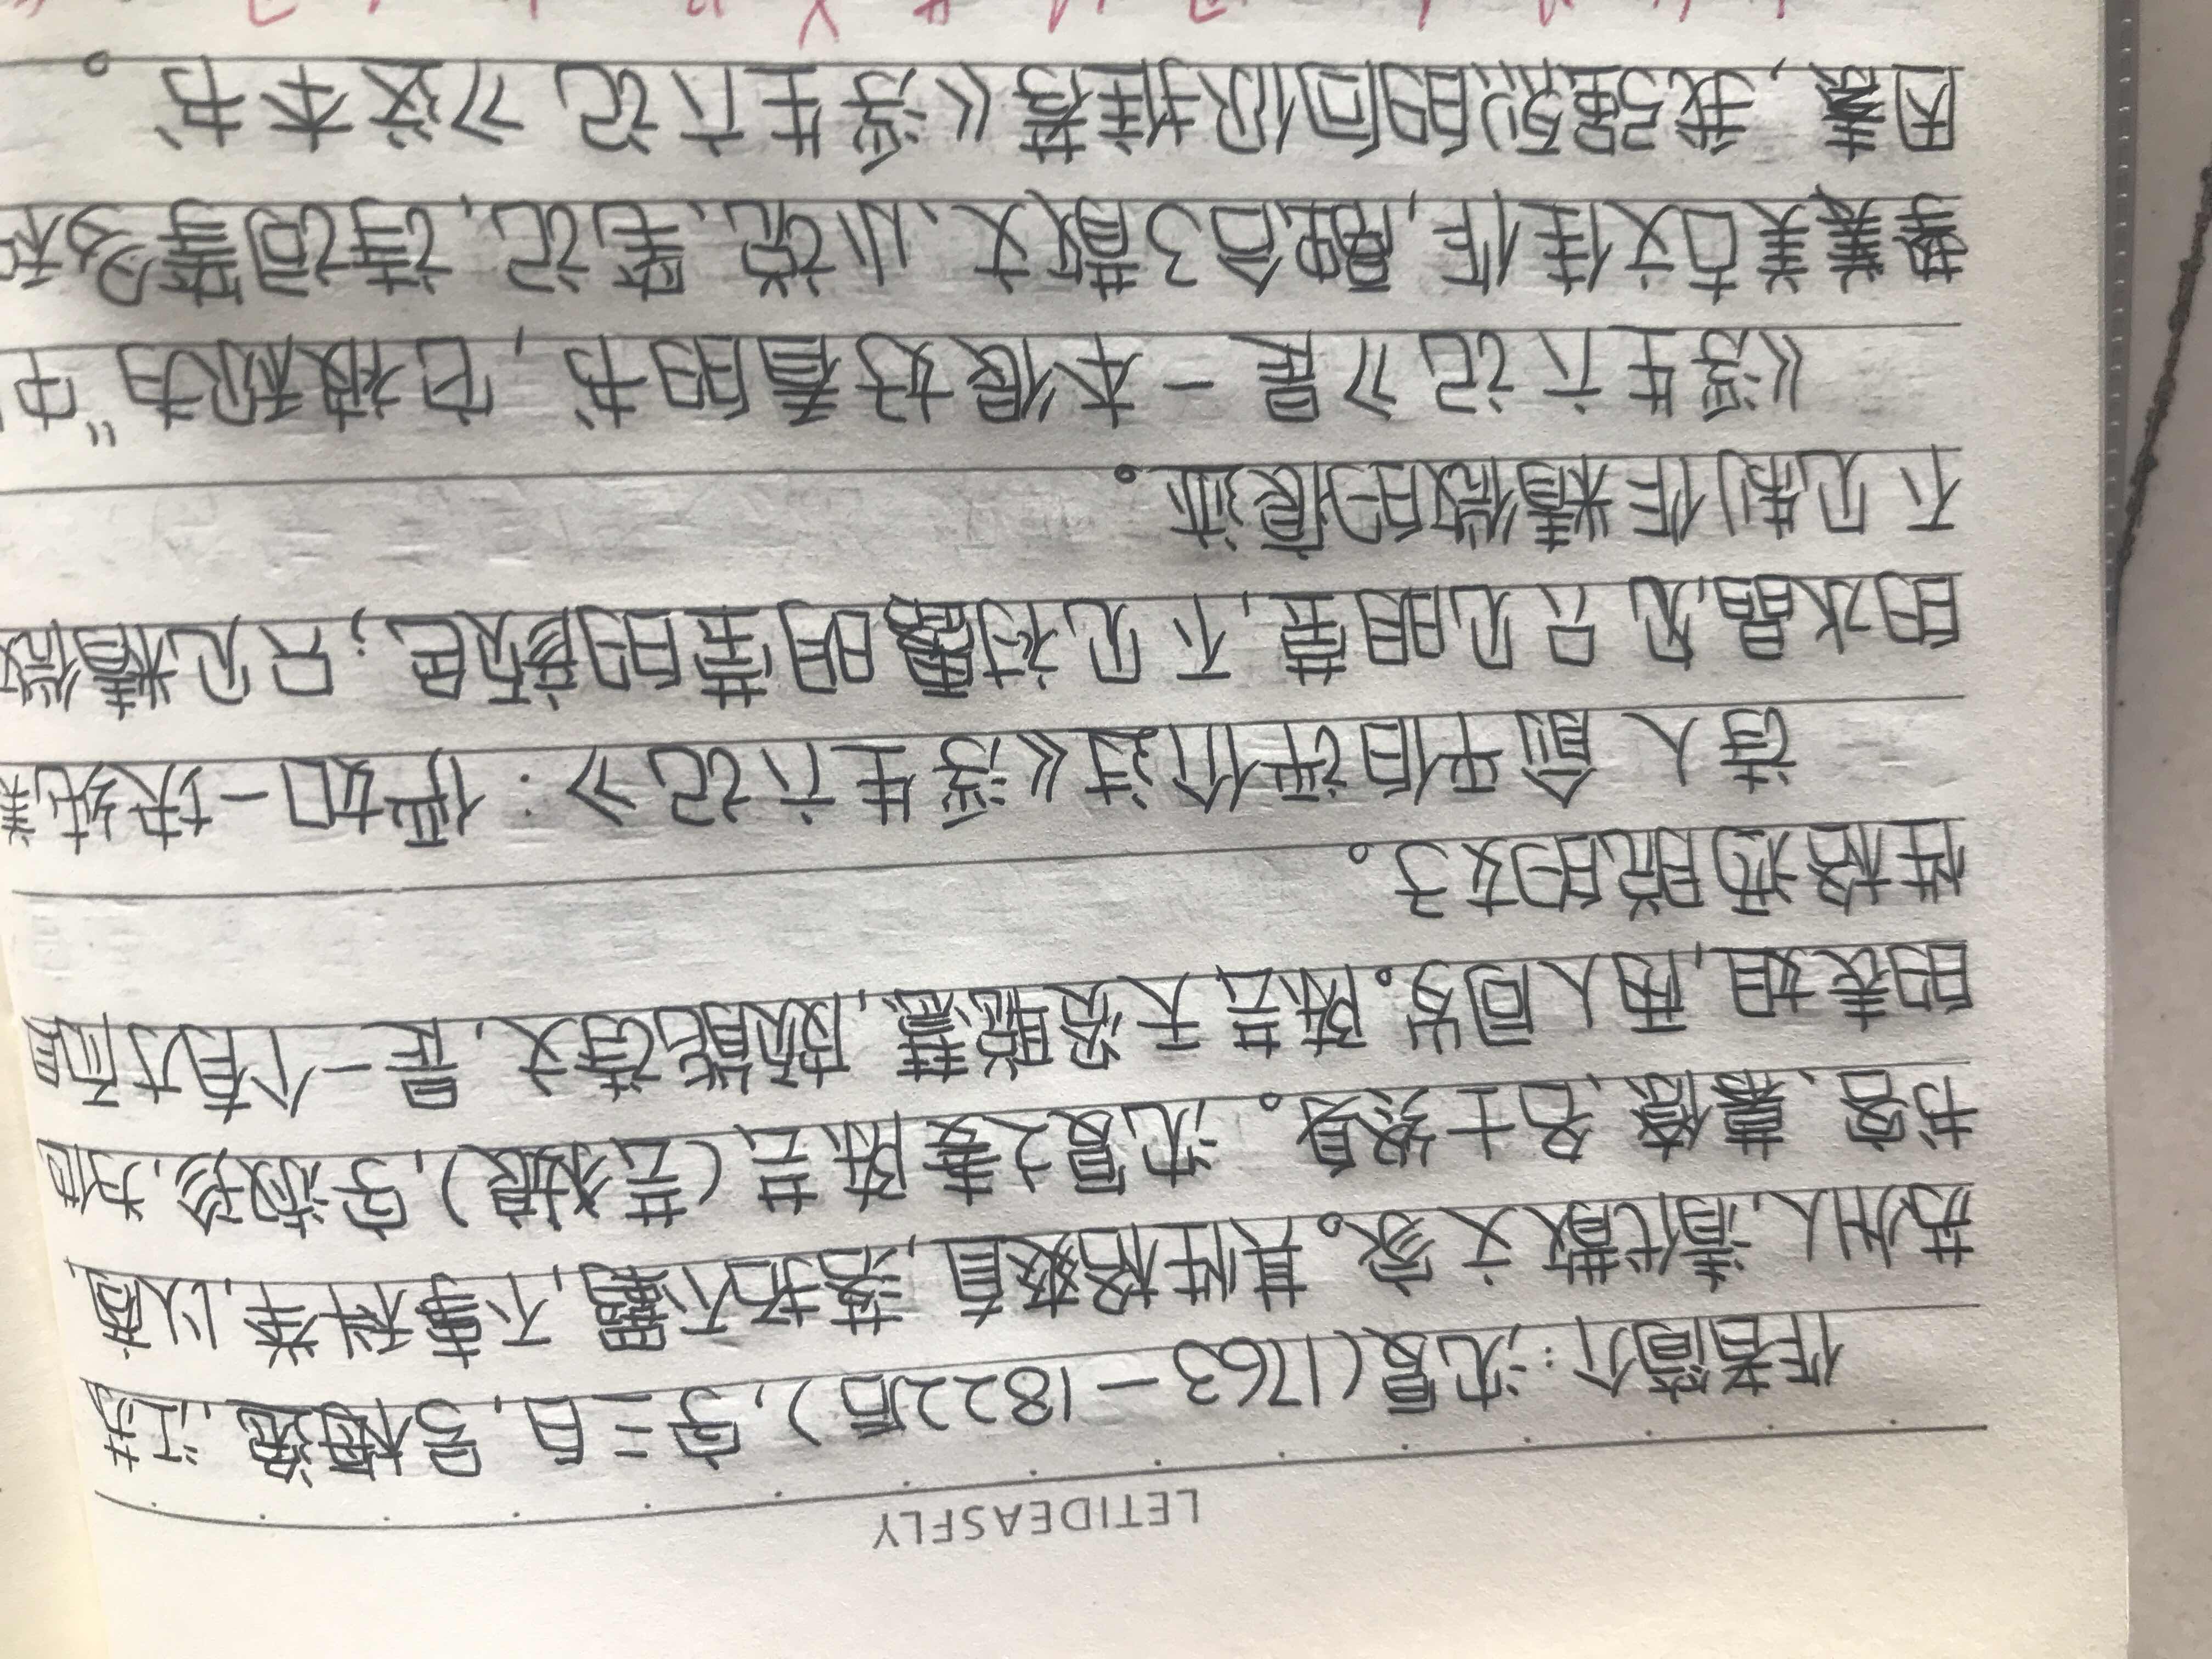 LETIDEASFLY
作者简介：沈复(1763－1822后)，字三白，号梅逸，江苏
苏州人，清代散文家。其性格爽直，落拓不羁，不事科举，以商
书客、幕僚、名士终身。沈复之妻陈芸(芸娘)，字淑珍，为他
的表姐，两人同岁。陈芸天资聪慧，颇能诗文，是一个有才而且
性格洒脱的女子。
诗人俞平伯评价过《浮生六记》：俨如一块纯美
的水晶，见只见明莹，不见衬露明莹的颜色；只见精微
不见制作精微的痕迹。
《浮生六记》是一本很好看的书，它被称为“中
凄美古文佳作，融合了散文、小说、笔记、诗词等多种
因素，我强烈的向你推荐《浮生六记》这本书。